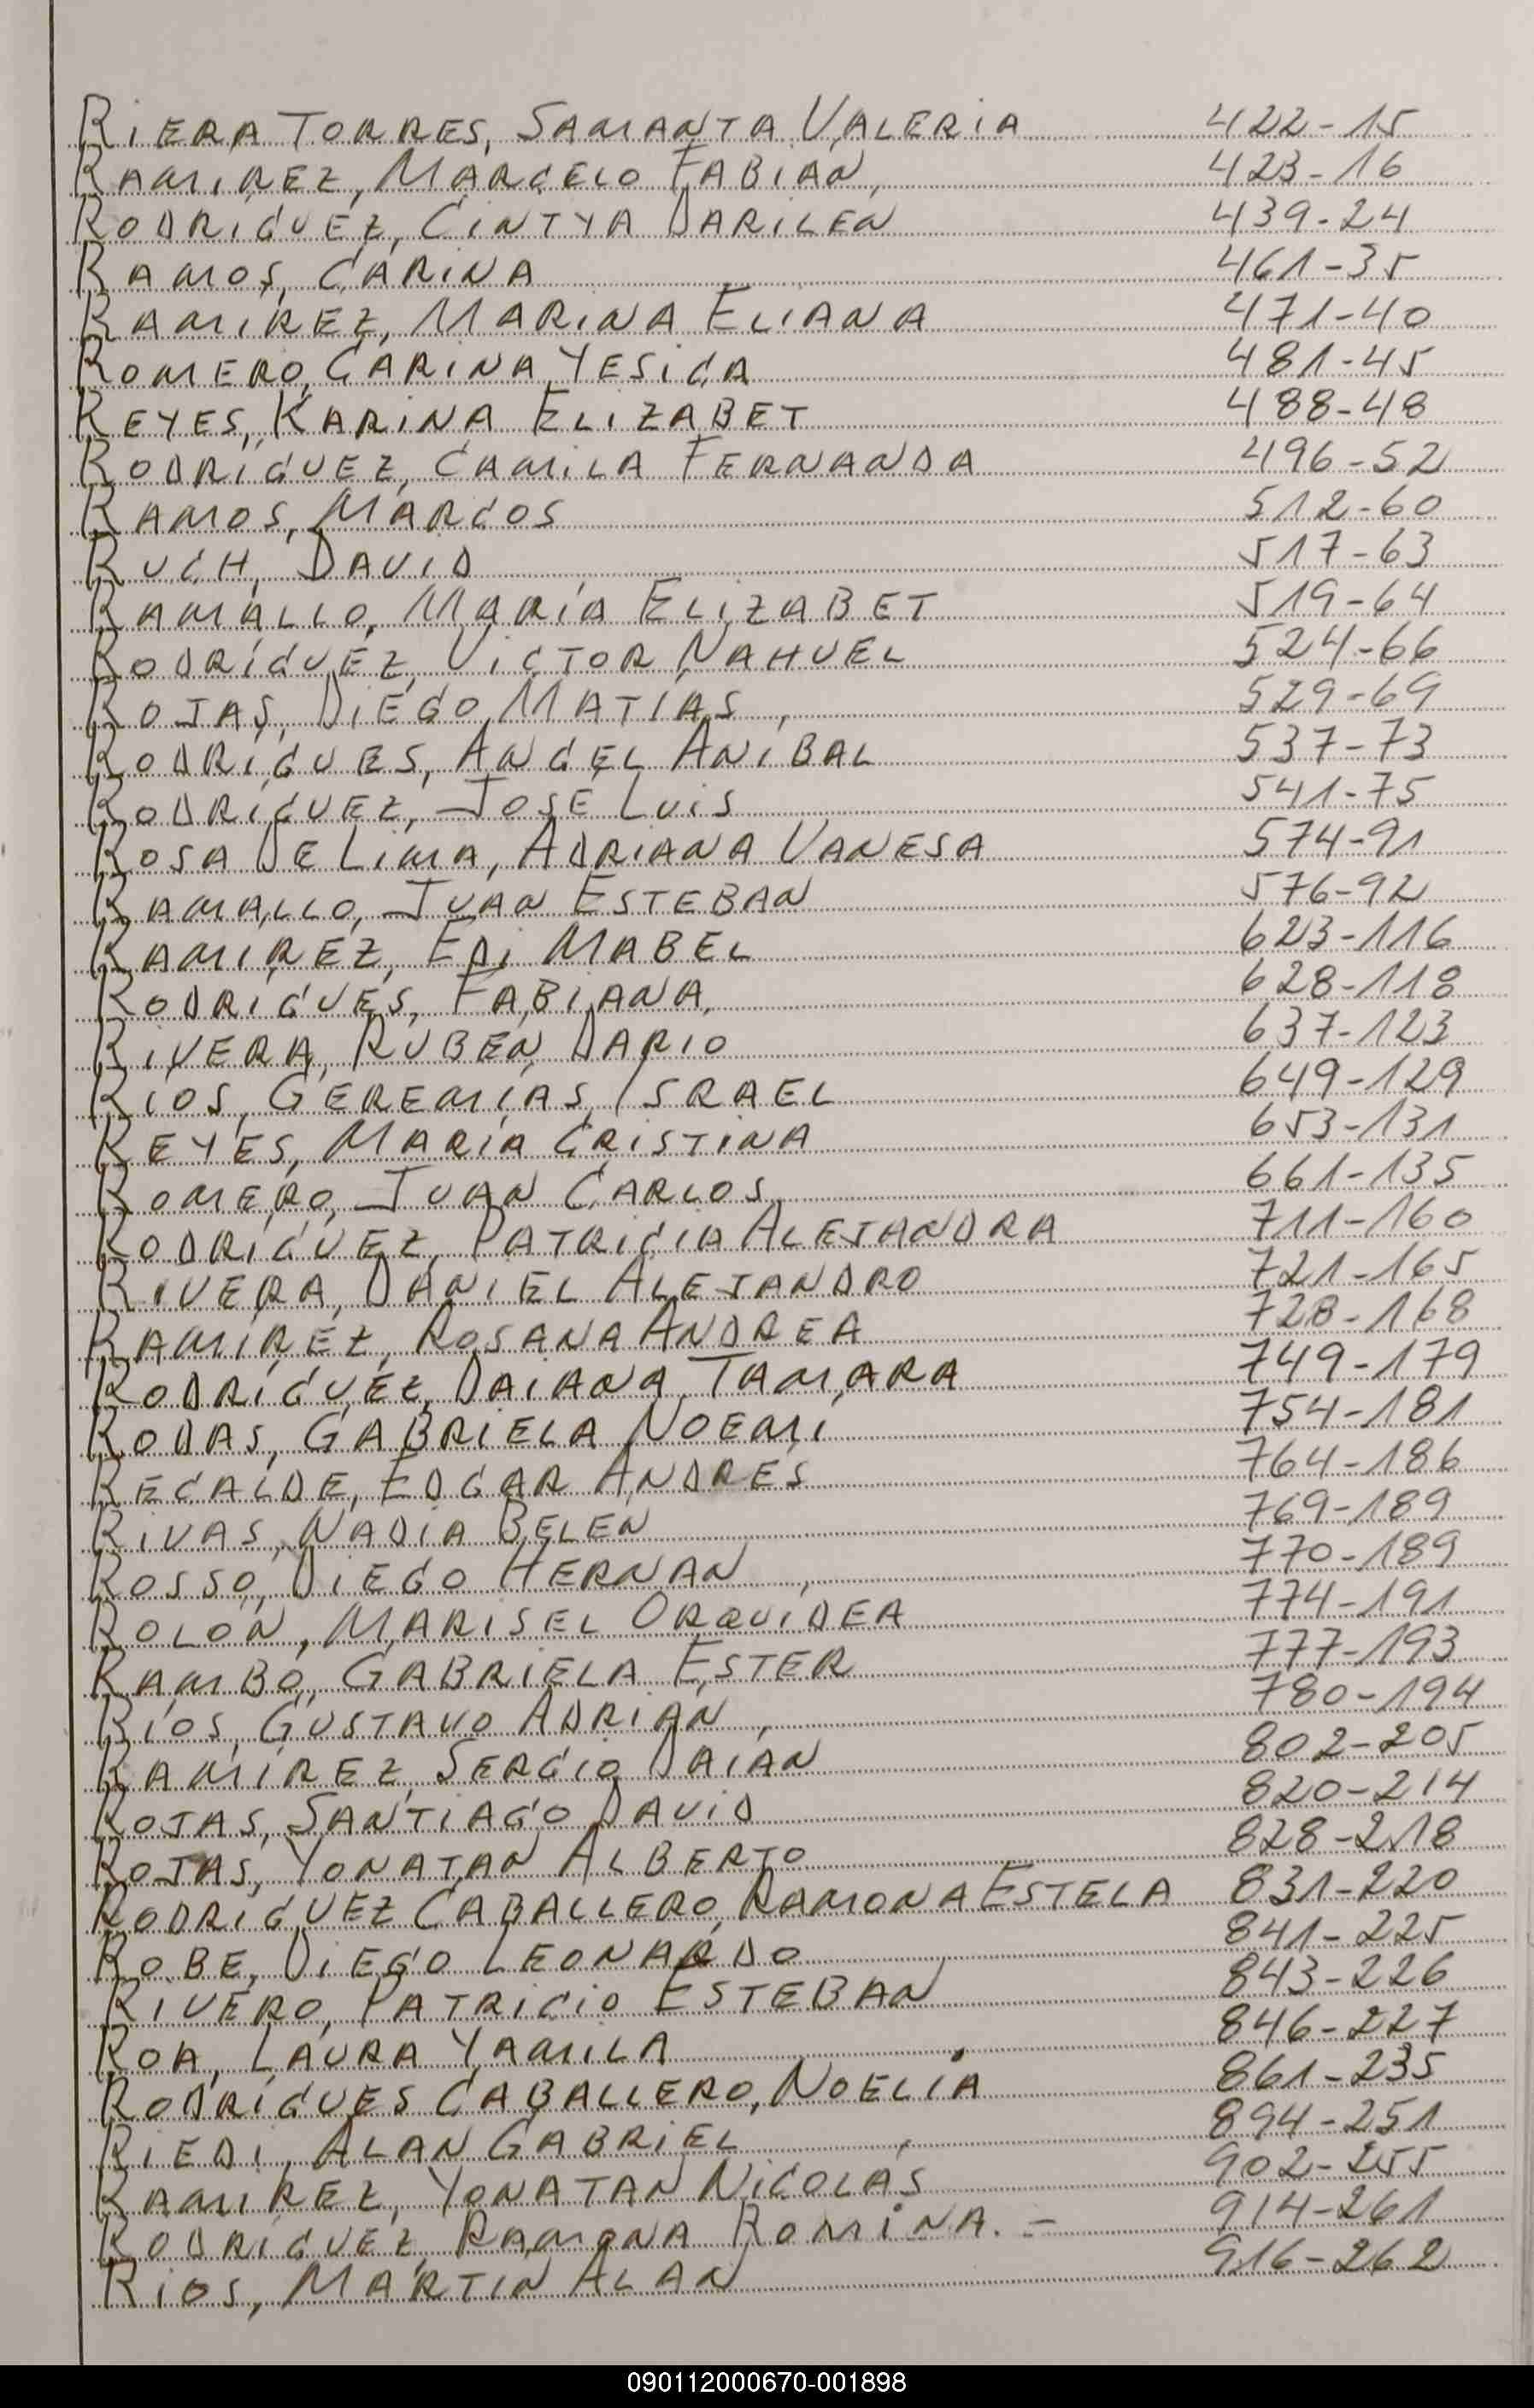 RIERA TORRES, SAMANTA VALERIA 422-15
RAMIREZ, MARCELO FABIÁN 423-16
RODRIGUEZ, CINTYA DARILEN 439-24
RAMOS, CARINA 461-35
RAMIREZ, MARINA ELIANA 471-40
ROMERO, CARINA YESICA 481-45
REYES, KARINA ELIZABET 488-48
RODRÍGUEZ, CAMILA FERNANDA 496-52
RAMOS, MARCOS 512-60
RUCH, DAVID 517-63
RAMALLO, MARÍA ELIZABET 519-64
RODRÍGUEZ, VICTOR NAHUEL 524-66
ROJAS, DIEGO MATÍAS 529-69
RODRÍGUES, ANGEL ANÍBAL 537-73
RODRÍGUEZ, JOSE LUIS 541-75
ROSA DE LIMA, ADRIANA VANESA 574-91
RAMALLO, JUAN ESTEBAN 576-92
RAMIREZ, EDI MABEL 623-116
RODRÍGUES, FABIANA 628-118
RIVERA, RUBÉN DARIO 637-123
RIOS, GEREMÍAS ISRAEL 649-129
REYES, MARÍA CRISTINA 653-131
ROMERO, JUAN CARLOS 661-135
RODRÍGUEZ, PATRICIA ALEJANDRA 711-160
RIVERA, DANIEL ALEJANDRO 721-165
RAMÍREZ, ROSANA ANDREA 728-168
RODRÍGUEZ, DAIANA TAMARA 749-179
RODAS, GABRIELA NOEMI 754-181
RECALDE, EDGAR ANDRÉS 764-186
RIVAS, NADIA BELEN 769-189
ROSSO, DIEGO HERNAN 770-189
ROLÓN, MARISEL ORQUÍDEA 774-191
RAMBO, GABRIELA ESTER 777-193
RÍOS, GUSTAVO ADRIÁN 780-194
RAMÍREZ, SERGIO DAIÁN 802-205
ROJAS, SANTIAGO DAVID 820-214
ROJAS, YONATAN ALBERTO 828-218
RODRIGUEZ CABALLERO, RAMONA ESTELA 831-220
ROBE, DIEGO LEONARDO 841-225
RIVERO, PATRICIO ESTEBAN 843-226
ROA, LAURA YAMILA 846-227
RODRÍGUES CABALLERO, NOELIA 861-235
RIEDI, ALAN GABRIEL 894-251
RAMIREZ, YONATAN NICOLÁS 902-255
RODRÍGUEZ, RAMONA ROMINA.- 914-261
RIOS, MARTIN ALAN 916-262
090112000670-001898